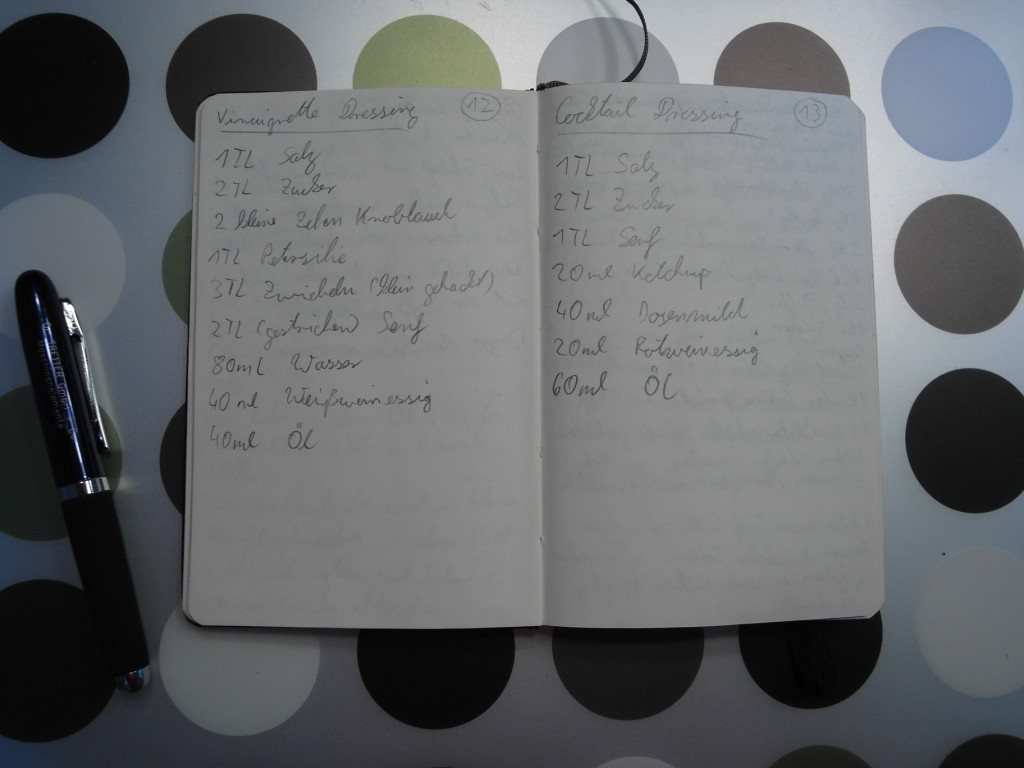 Vinaigrette Dressing 12
1TL Salz
2TL Zucker
2 kleine Zehen Knoblauch
1TL Petersilie
3TL Zwiebeln (klein gehackt)
2TL (gestrichen) Senf
80ml Wasser
40ml Weißweinessig
40ml Öl
Cocktail Dressing 13
1TL Salz
2TL Zucker
1TL Senf
20ml Ketchup
40ml Dosenmilch
20ml Rotweinessig
60ml Öl